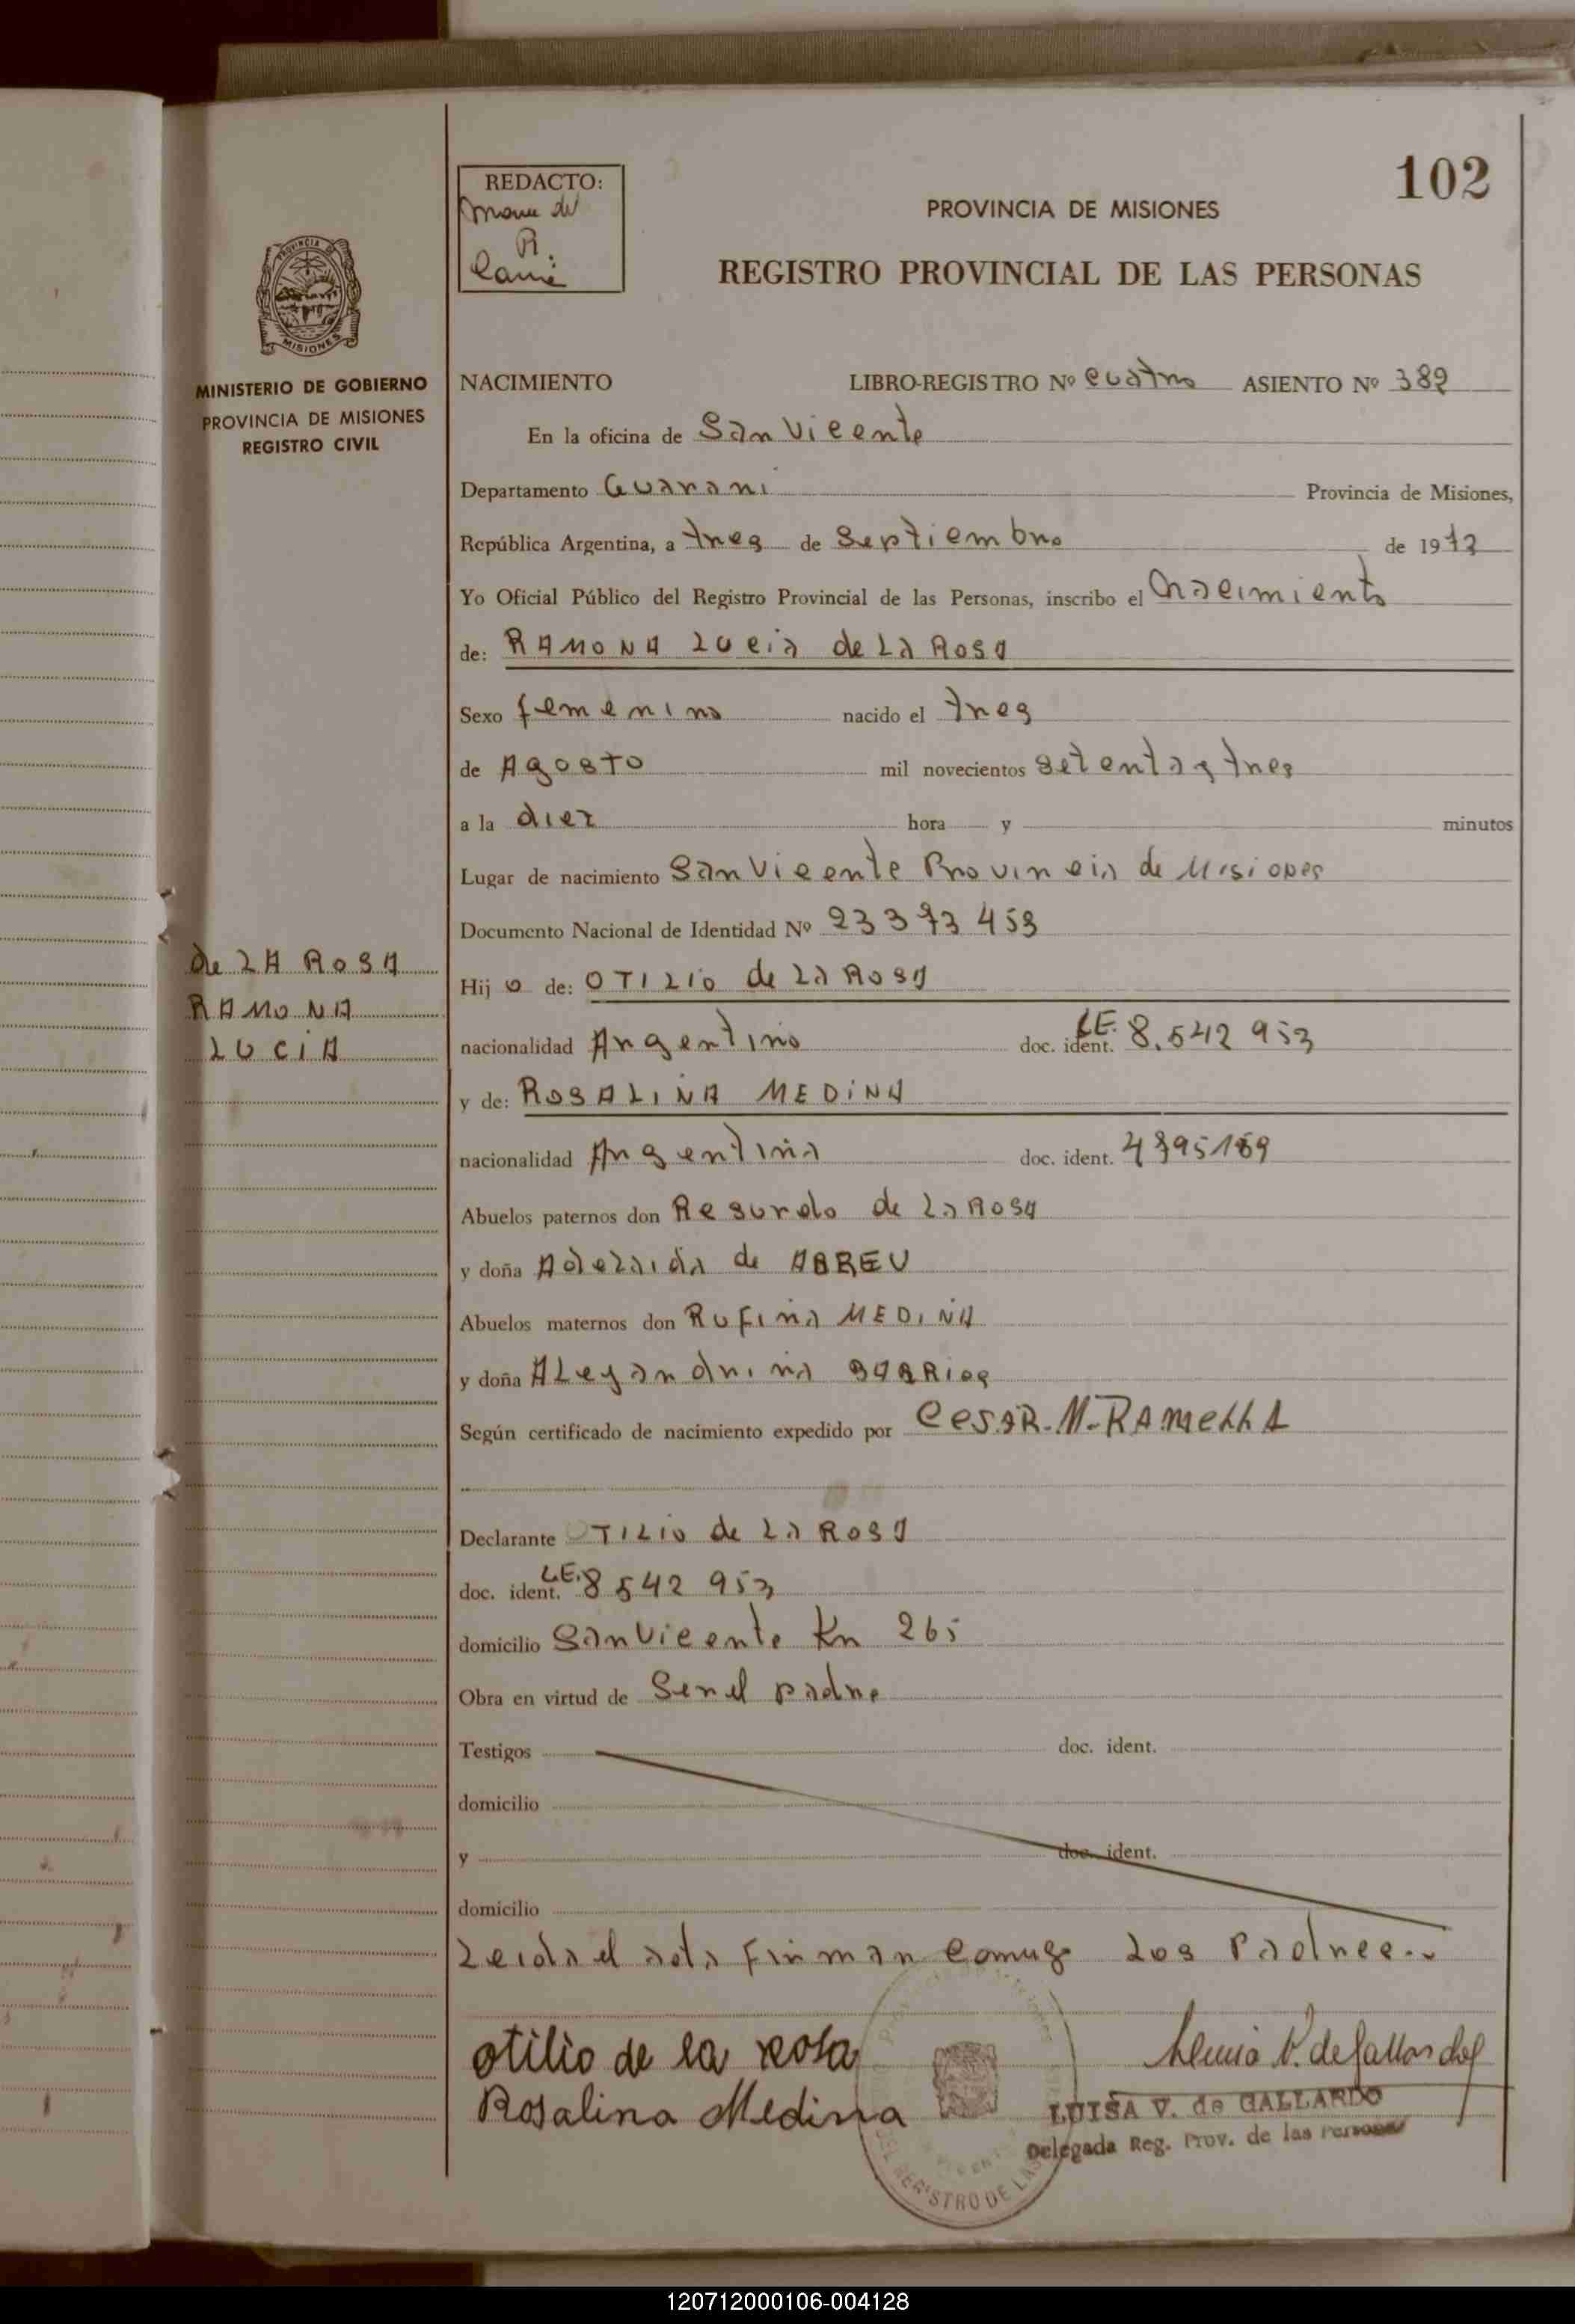 102
REDACTO:
R.
PROVINCIA DE MISIONES
REGISTRO PROVINCIAL DE LAS PERSONAS
PROVINCIA DE
MISIONES
MINISTERIO DE GOBIERNO
PROVINCIA DE MISIONES
REGISTRO CIVIL
NACIMIENTO LIBRO-REGISTRO Nº cuatro ASIENTO Nº 382
En la oficina de San Vicente
Departamento Guarani Provincia de Misiones,
República Argentina, a tres de Septiembre de 1973
Yo Oficial Público del Registro Provincial de las Personas, inscribo el Nacimiento
de: RAMONA Lucia de La Rosa
Sexo femenino nacido el tres
de Agosto mil novecientos setenta y tres
a la diez hora y minutos
Lugar de nacimiento San Vicente Provincia de Misiones
Documento Nacional de Identidad Nº 23 373 453
de LA ROSA
RAMONA
LUCIA
Hij o de: OTILIO de La Rosa
nacionalidad Argentino doc. ident. LE. 8.542 953
y de: ROSALINA MEDINA
nacionalidad Argentina doc. ident.
Abuelos paternos don de La Rosa
y doña Adelaida de ABREU
Abuelos maternos don Rufina MEDINA
y doña Aleyandrina BARRios
Según certificado de nacimiento expedido por Cesar. M. RAMELLA
Declarante OTILIO de La Rosa
doc. ident. LE. 8 542 953
domicilio San Vicente Km 265
Obra en virtud de Ser el padre
Testigos doc. ident.
domicilio
y doc. ident.
domicilio
Leida el acta firman comigo Los Padres..
otilio de la rosa
Rosalina Medina
V. de Gallardo
LUISA V. de GALLARDO
Delegada Reg. Prov. de las Personas
DEL REGISTRO DE LAS
120712000106-004128